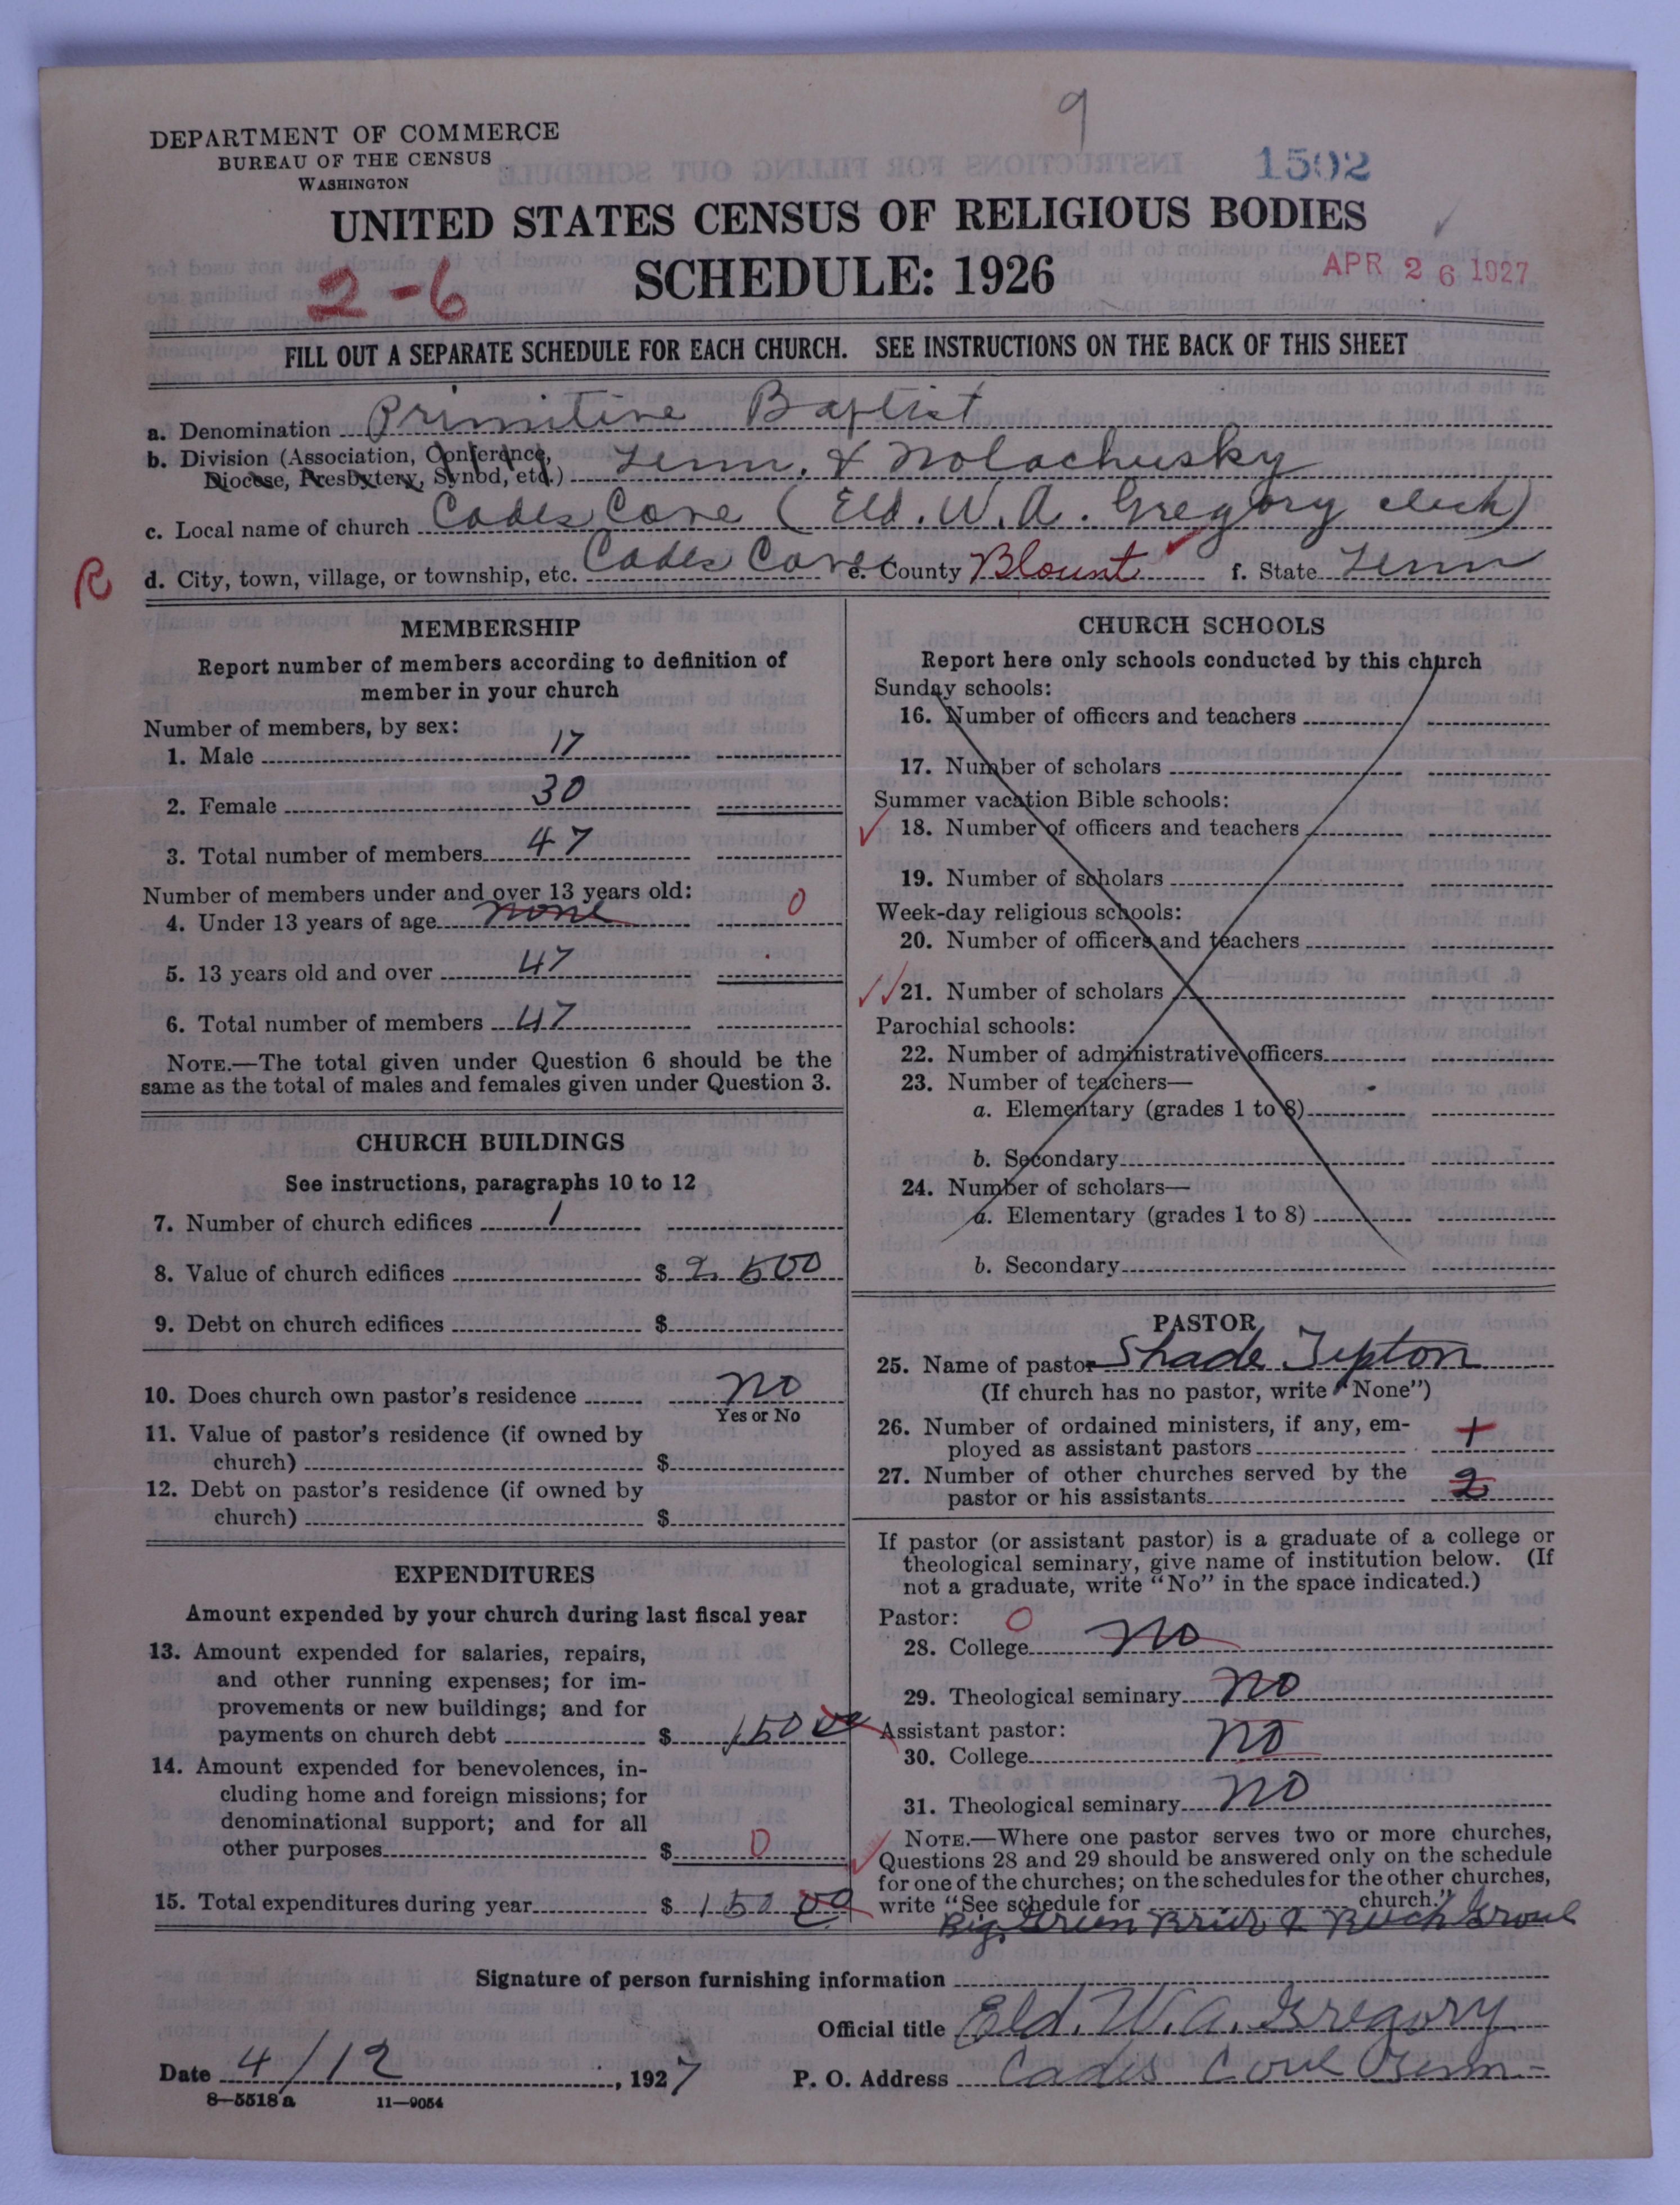 9
DEPARTMENT OF COMMERCE
BUREAU OF THE CENSUS
WASHINGTON
1502
UNITED STATES CENSUS OF RELIGIOUS BODIES
SCHEDULE: 1926
2-6
APR 26 1927
FILL OUT A SEPARATE SCHEDULE FOR EACH CHURCH. SEE INSTRUCTIONS ON THE BACK OF THIS SHEET
a. Denomination Primitive Baptist
b. Division (Association, Conference, Diocese, Presbytery, Synod, etc.) Tenn. & Nolachusky
c. Local name of church Cades Cove (Eld. W. A. Gregory clerk)
R
d. City, town, village, or township, etc. Cades Cove e. County Blount f. State Tenn
MEMBERSHIP
Report number of members according to definition of
member in your church
Number of members, by sex:
1. Male 17
2. Female 30
3. Total number of members 47
Number of members under and over 13 years old:
4. Under 13 years of age none 0
5. 13 years old and over 47
6. Total number of members 47
NOTE.—The total given under Question 6 should be the
same as the total of males and females given under Question 3.
CHURCH BUILDINGS
See instructions, paragraphs 10 to 12
7. Number of church edifices 1
8. Value of church edifices $ 2500
9. Debt on church edifices $
10. Does church own pastor's residence no
Yes or No
11. Value of pastor's residence (if owned by
church) $
12. Debt on pastor's residence (if owned by
church) $
EXPENDITURES
Amount expended by your church during last fiscal year
13. Amount expended for salaries, repairs,
and other running expenses; for im-
provements or new buildings; and for
payments on church debt $ 150 00
14. Amount expended for benevolences, in-
cluding home and foreign missions; for
denominational support; and for all
other purposes $ 0
15. Total expenditures during year $ 150 00
CHURCH SCHOOLS
Report here only schools conducted by this church
Sunday schools:
16. Number of officers and teachers
17. Number of scholars
Summer vacation Bible schools:
18. Number of officers and teachers
19. Number of scholars
Week-day religious schools:
20. Number of officers and teachers
21. Number of scholars
Parochial schools:
22. Number of administrative officers
23. Number of teachers—
a. Elementary (grades 1 to 8)
b. Secondary
24. Number of scholars—
a. Elementary (grades 1 to 8)
b. Secondary
PASTOR
25. Name of pastor Shade Tipton
(If church has no pastor, write "None")
26. Number of ordained ministers, if any, em-
ployed as assistant pastors 1
27. Number of other churches served by the
pastor or his assistants 2
If pastor (or assistant pastor) is a graduate of a college or
theological seminary, give name of institution below. (If
not a graduate, write "No" in the space indicated.)
Pastor: 0
28. College no
29. Theological seminary no
Assistant pastor:
30. College no
31. Theological seminary no
NOTE.—Where one pastor serves two or more churches,
Questions 28 and 29 should be answered only on the schedule
for one of the churches; on the schedules for the other churches,
write "See schedule for church."
Big Green Brier & Beech Grove
Signature of person furnishing information
Official title Eld. W. A. Gregory
Date 4/12, 1927 P. O. Address Cades Cove Tenn-
8—5518 a 11—9054